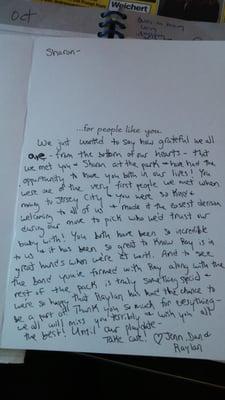 Oct
Weichert
Sharon-
...for people like you.
We just wanted to say how grateful we all
are - from the bottom of our hearts - that
we met you + Sharon at the park + have had the
opportunity to have you both in our lives! You
were one of the very first people we met when
moving to Jersey City + you were so kind +
welcoming to all of us + made it the easiest decision
during our move to pick who we'd trust our
baby with! You both have been so incredible
to us + it has been so great to know Ray is in
great hands when we're at work. And to see
the bond you've formed with Ray along with the
rest of the pack is truly something special +
were so happy that Raylan has had the chance to
be a part of! Thank you so much for everything -
we all will miss you terribly + wish you all
the best! Until our playdate -
Take care! ♡ Jenn, Dan &
Raylan